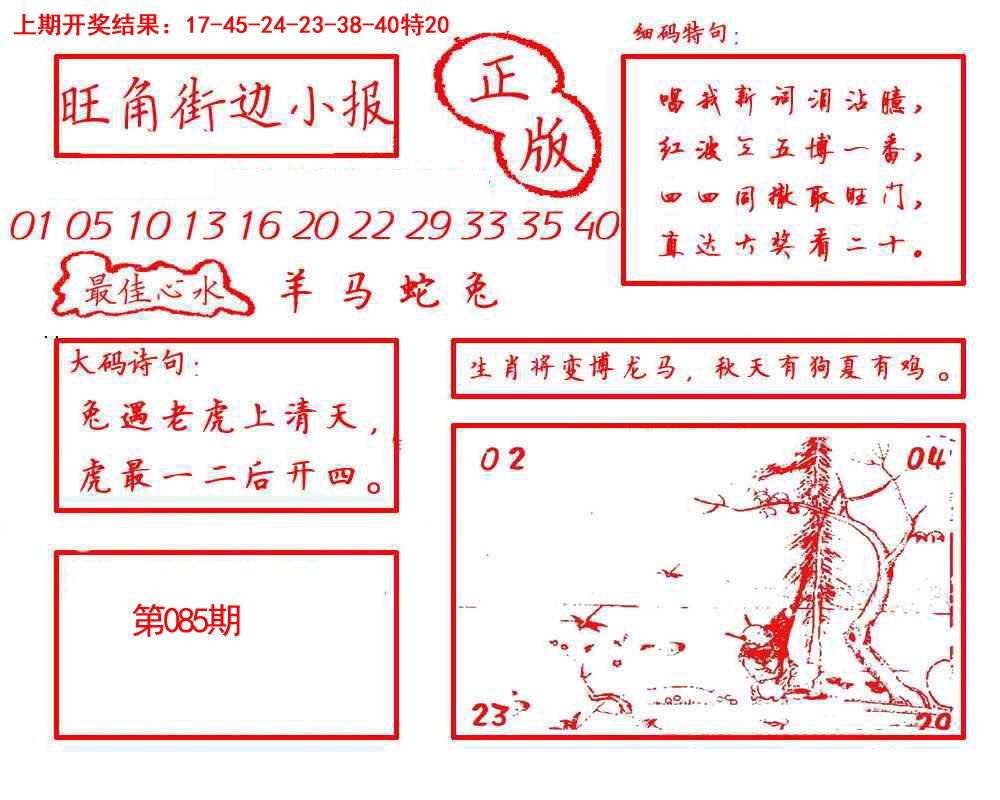 上期开奖结果：17-45-24-23-38-40特20
细码特句：
旺角街边小报
正版
唱我新词泪沾臆，
红波三五博一番，
四四同撤取旺门，
直达大奖看二十。
01 05 10 13 16 20 22 29 33 35 40
最佳心水
羊马蛇兔
大码诗句：
兔遇老虎上清天，
虎最一二后开四。
生肖将变博龙马，秋天有狗夏有鸡。
02
04
第085期
23
20